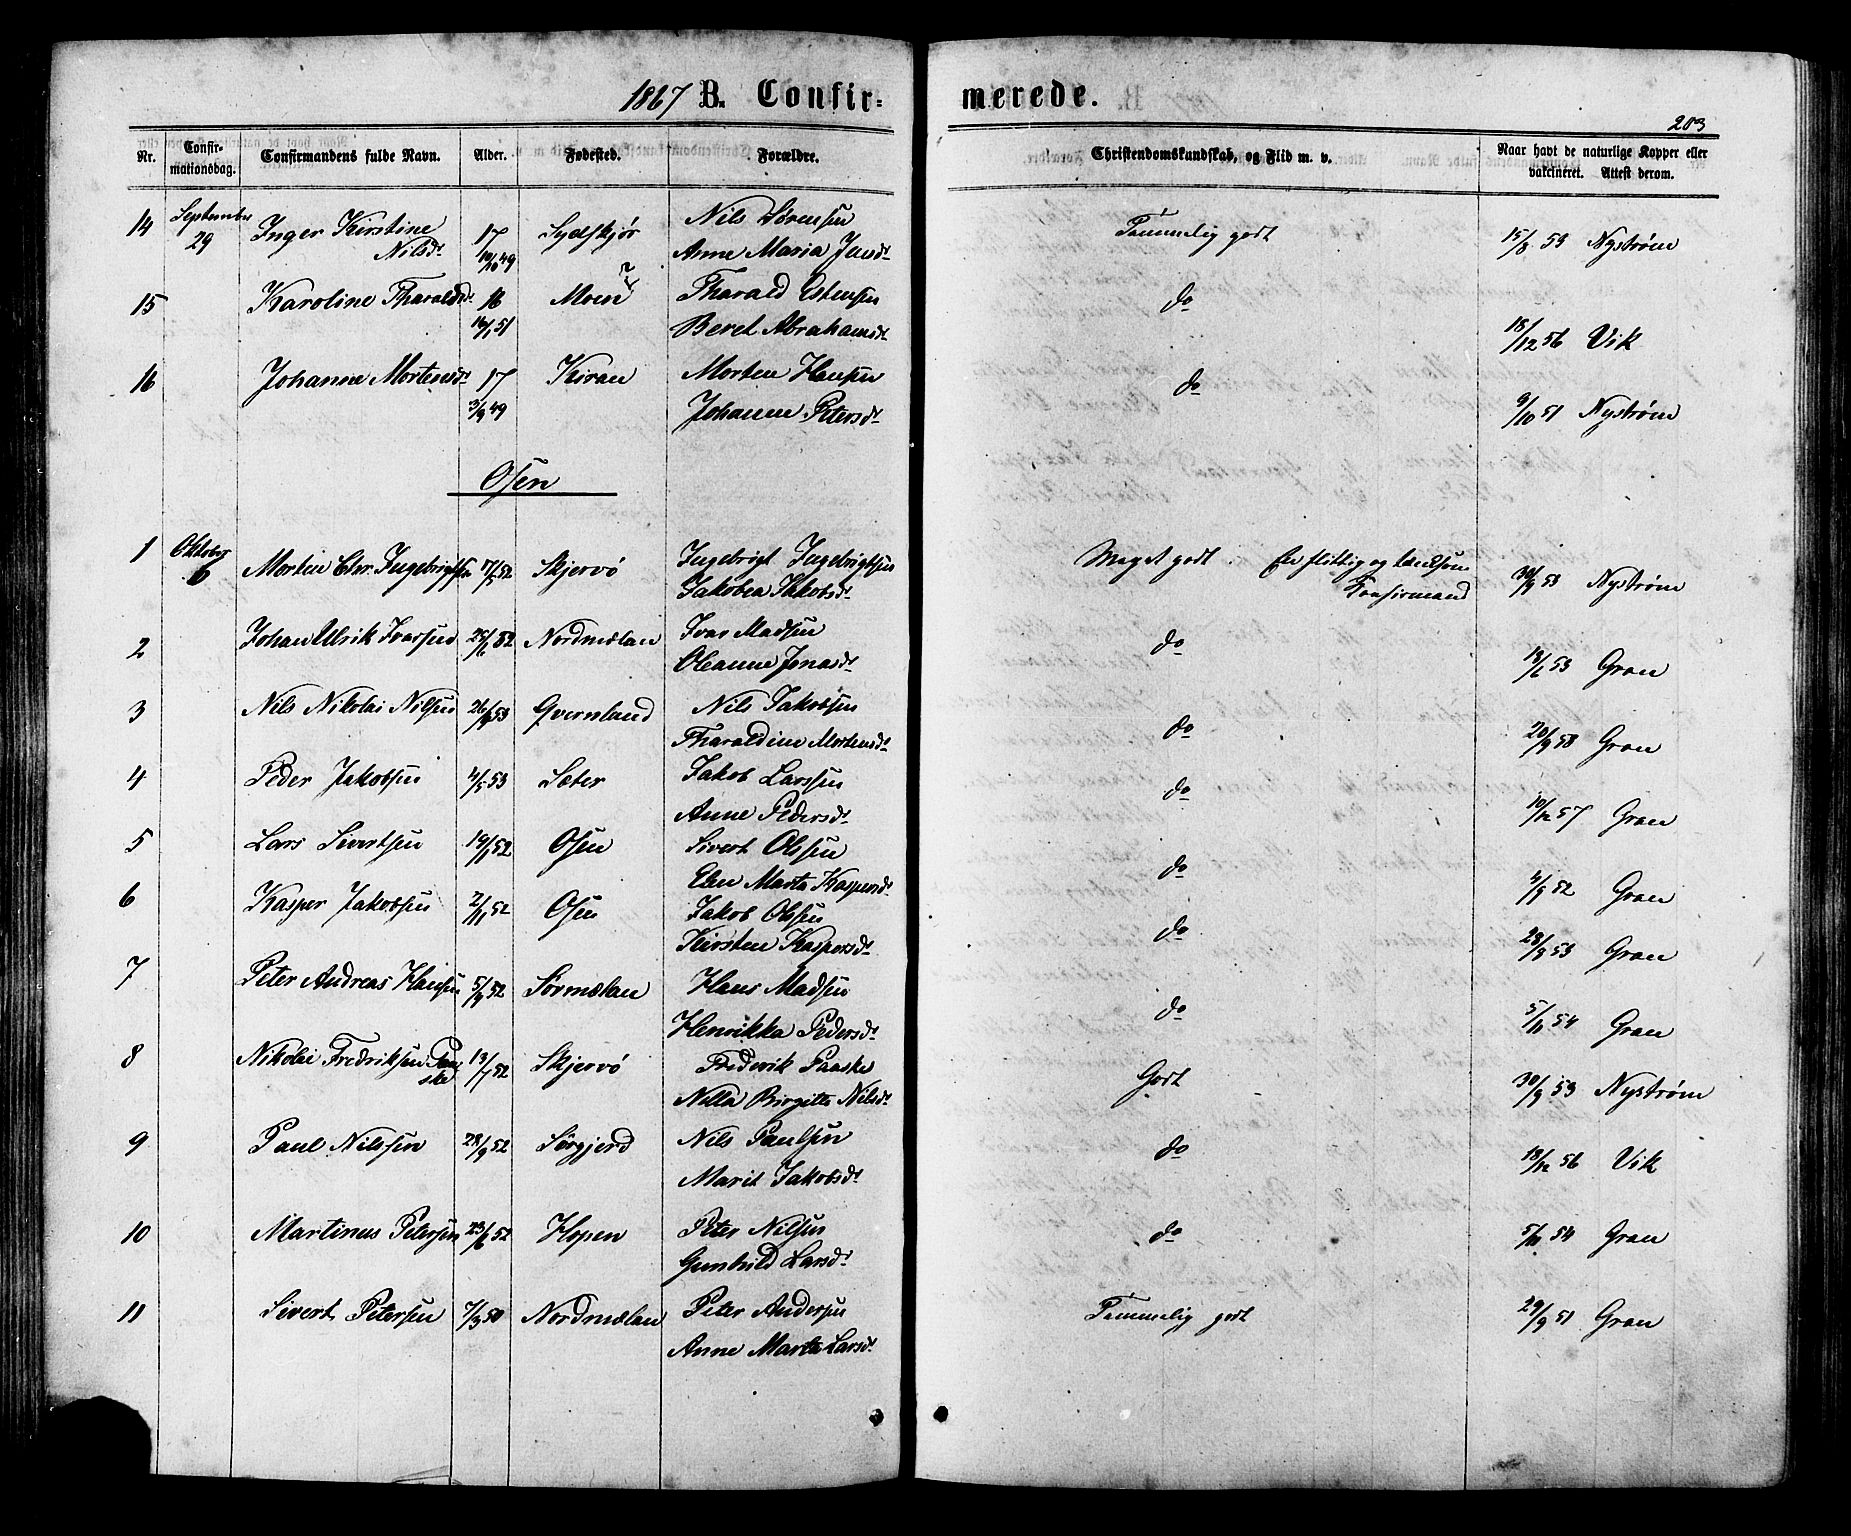 1867 B. Confirmerede.
203
Nr. Confirmationsdag. Confirmandens fulde Navn. Alder. Fødested. Forældre. Christendomskundskab, og Flid m. v. Naar havt de naturlige Kopper eller vakcineret. Attest derom.
14 September 29 Inger Kirstine Nilsd. 17 10/10 49 Sydskjør Nils Sørensen Anne Maria Jensd. Temmelig godt 15/8 53 Nystrøm
15 Karoline Tharaldsd. 16 16/1 51 Moen Tharald Estensen Beret Abrahamsd. do 18/12 56 Vik
16 Johanne Mortensd. 17 3/9 49 Kiran Morten Hansen Johanne Petersd. do 9/10 51 Nystrøm
Osen
1 Oktober 6 Morten Eler Ingebrigtsn 17/5 52 Skjervö Ingebrigt Ingebrigtsen Jakobea Jakobsd. Meget godt. En flittig og lænksom Konfirmand 30/9 53 Nystrøm
2 Johan Ulrik Ivarsen 25/6 52 Nordmælan Ivar Madsen Oleanne Jonasd. do 13/6 53 Gran
3 Nils Nikolai Nilsen 26/8 53 Qvernland Nils Jakobsen Tharaldine Mortensd. do 20/9 58 Gran
4 Peder Jakobsen 4/5 53 Sæter Jakob Larssen Anne Pedersd. do 10/12 57 Gran
5 Lars Sivertsen 19/1 52 Osen Sivert Olssen Elen Marta Kaspersd. do 4/9 52 Gran
6 Kasper Jakobsen 2/11 52 Osen Jakob Olssen Kirsten Kaspersd. do 28/9 53 Gran
7 Peter Andreas Hansen 5/9 52 Sørmælan Hans Madsen Henrikka Pedersd. do 5/11 54 Gran
8 Nikolai Fredriksen Paaske 13/7 52 Skjervö Frederik Paaske Nilla Birgitte Nilsd. Godt 30/9 53 Nystrøm
9 Paul Nilssen 28/9 52 Sørgjerd Nils Paulsen Marit Jakobsd. do 18/12 56 Vik
10 Martinus Petersen 23/6 52 Hopen Peter Nilsen Gunhild Larsd. do 5/11 54 Gran
11 Sivert Petersen 7/3 50 Nordmælan Peter Andersen Anne Marta Larsd. Temmelig godt 29/9 51 Gran